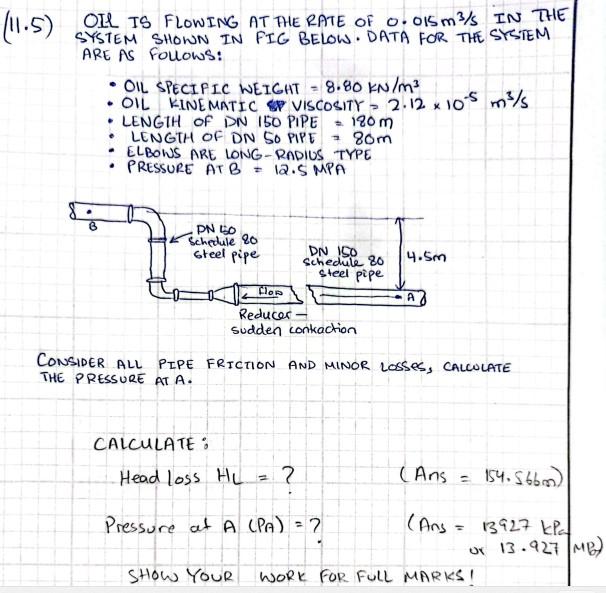 (11.5) OIL IS FLOWING AT THE RATE OF 0.015 m³/s IN THE
SYSTEM SHOWN IN FIG BELOW. DATA FOR THE SYSTEM
ARE AS FOLLOWS:
• OIL SPECIFIC WEIGHT = 8.80 KN/m³
• OIL KINEMATIC VISCOSITY = 2.12 x 10⁻⁵ m³/s
• LENGTH OF DN 150 PIPE = 180 m
• LENGTH OF DN 50 PIPE = 80m
• ELBOWS ARE LONG-RADIUS TYPE
• PRESSURE AT B = 12.5 MPA
B
DN 50
Schedule 80
steel pipe
DN 150
Schedule 80
steel pipe
4.5m
flow
A
Reducer –
sudden contraction
CONSIDER ALL PIPE FRICTION AND MINOR LOSSES, CALCULATE
THE PRESSURE AT A.
CALCULATE :
Head loss HL = ? (Ans = 154.566m)
Pressure at A (PA) = ? (Ans = 13927 kPa
or 13.927 MPa)
SHOW YOUR WORK FOR FULL MARKS!